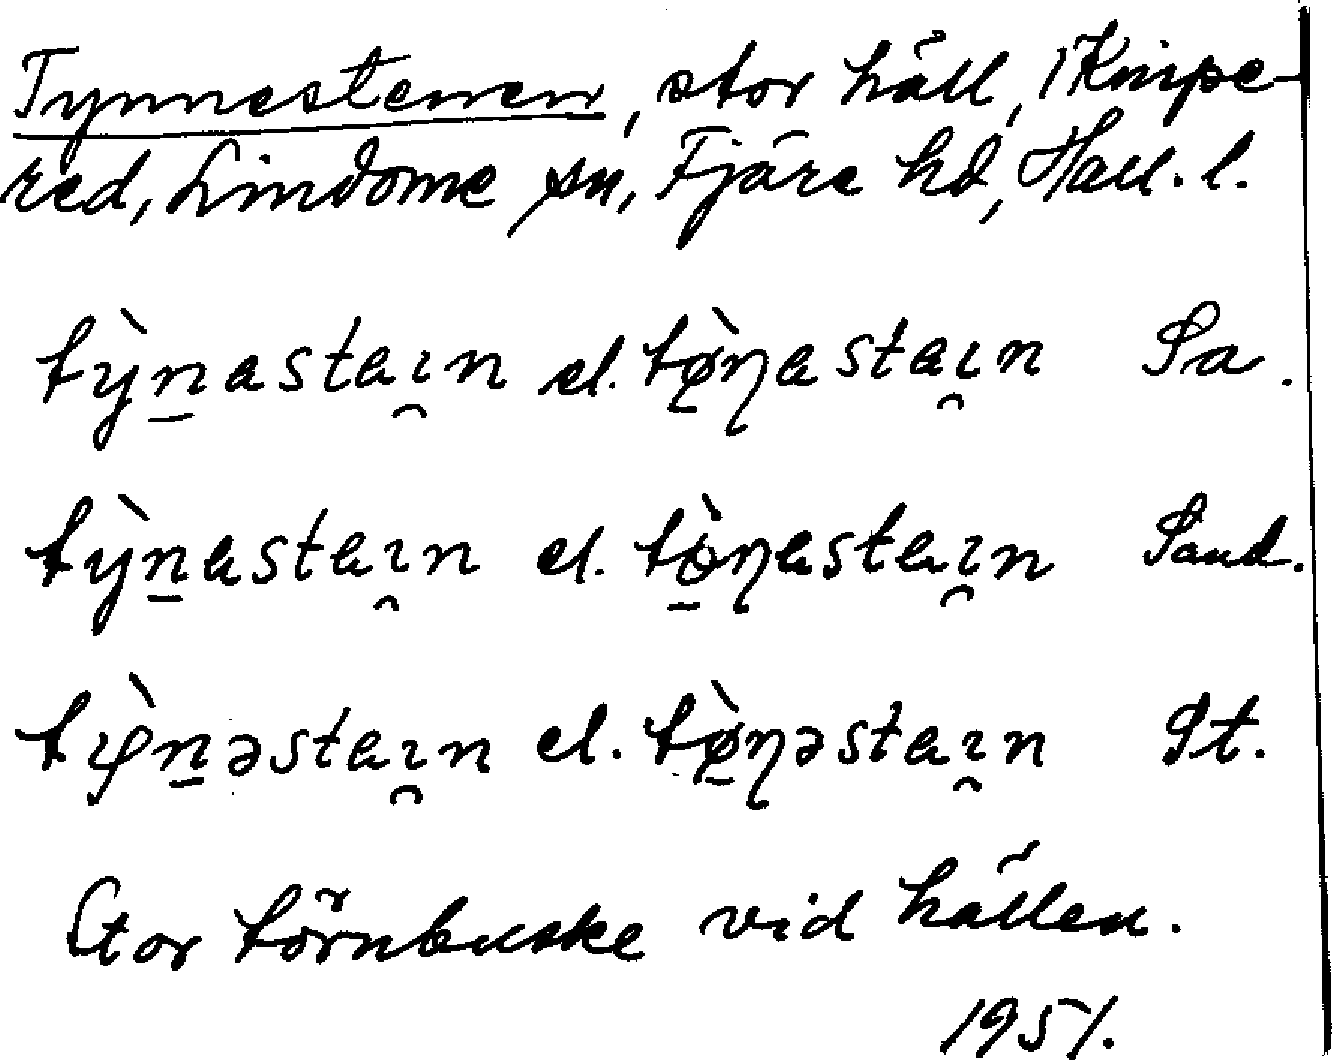 Tynnestenen, stor häll, i Knipe-
red, Lindome sn, Fjäre hd, Hall. l.
tỳn̲astaı̯n el. tø̲̀ŋastaı̯n Sa.
tỳn̲astaı̯n el. tö̲̀ŋastaı̯n Sand.
tỳn̲əstaı̯n el. tø̲̀ŋəstaı̯n St.
Stor törnbuske vid hällen.
1951.